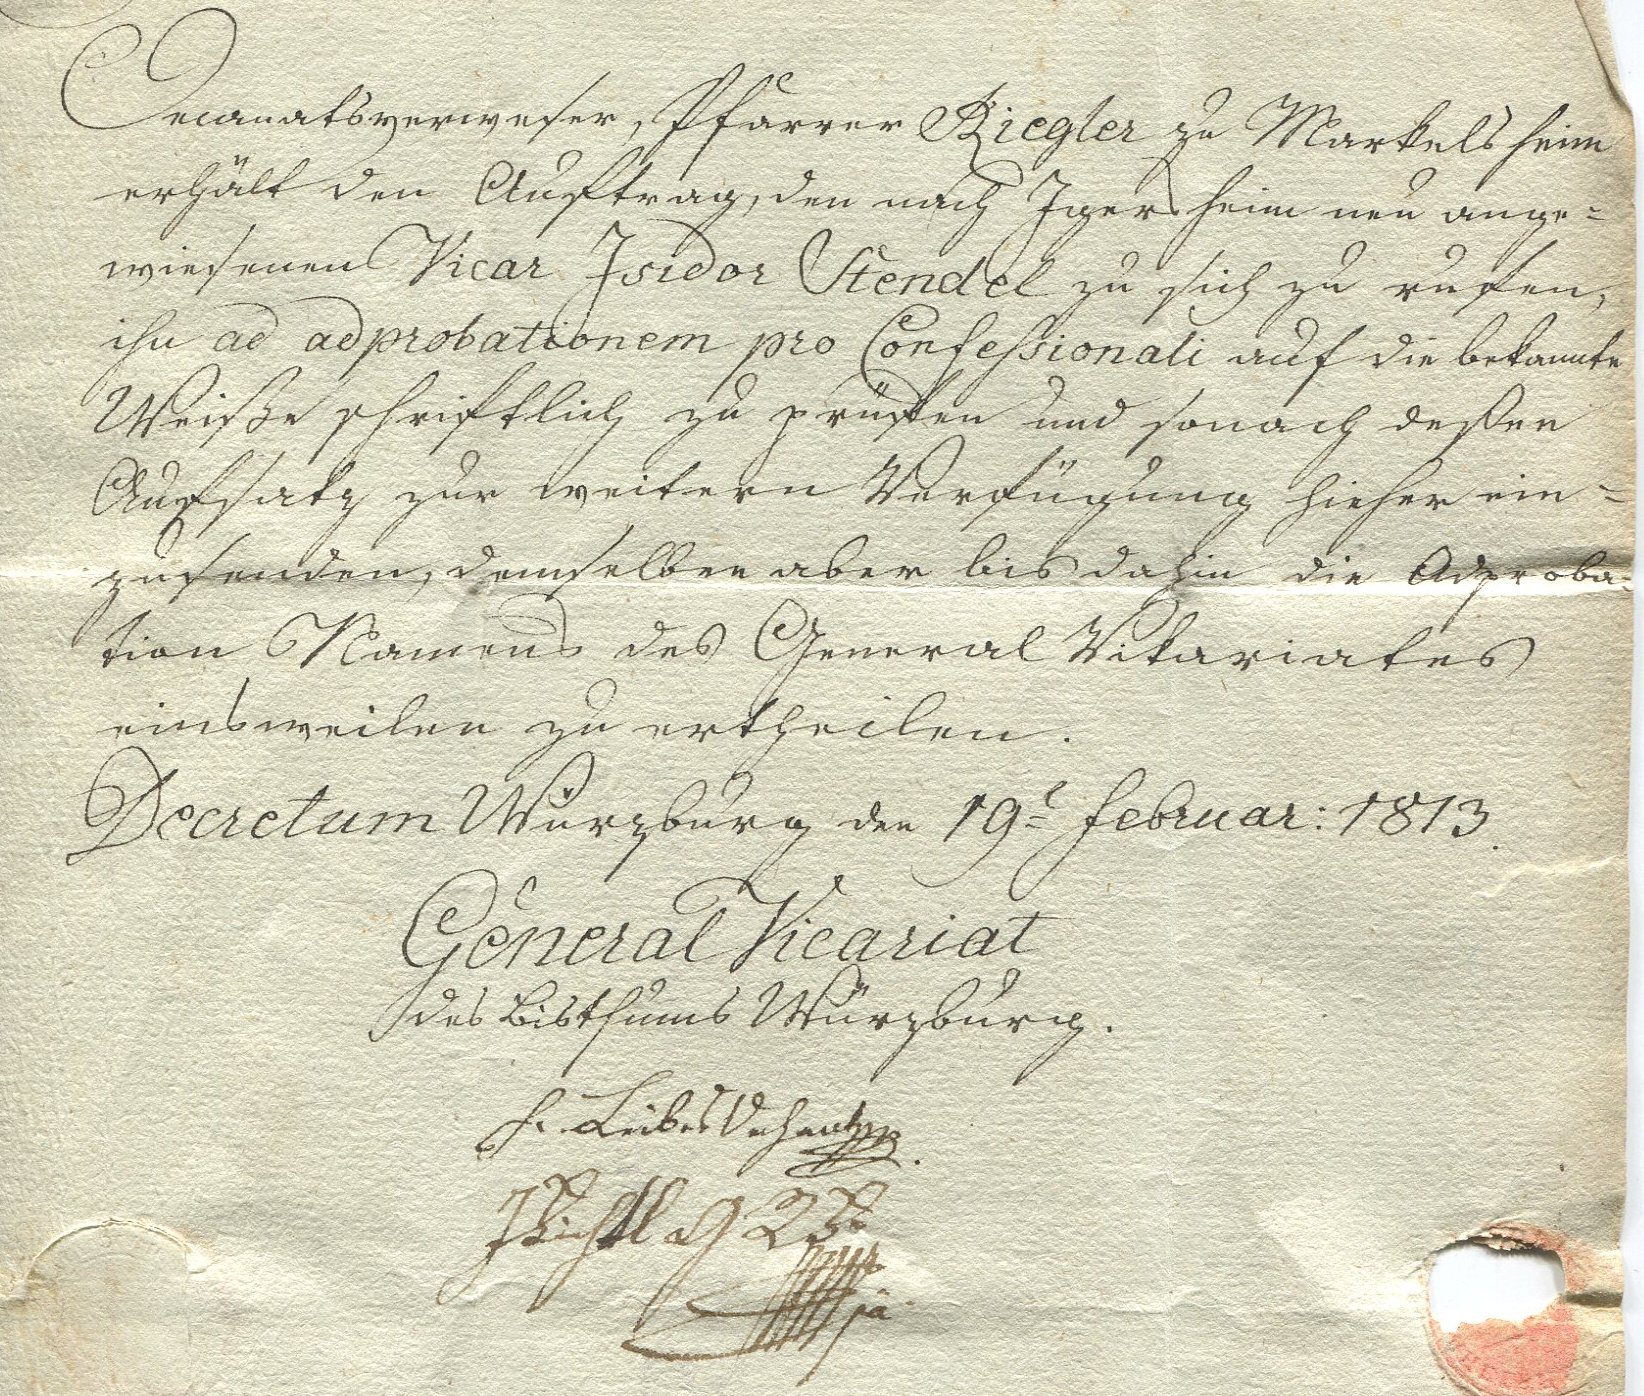 Decanatsverweser, Pfarrer Riegler zu Markelsheim
erhält den Auftrag, den nach Igersheim neu ange=
wiesenen Vicar Isidor Stendel zu sich zu rufen,
ihn ad adprobationem pro Confessionali auf die bekannte
Weiße schriftlich zu prüfen und sonach deßen
Aufsatz zur weitern Verfügung hieher ein=
zusenden, demselben aber bis dahin die Adproba=
tion Namens des General Vikariates
einsweilen zu ertheilen.
Decretum Würzburg den 19t Februar: 1813.
General Vicariat
des Bisthums Würzburg.